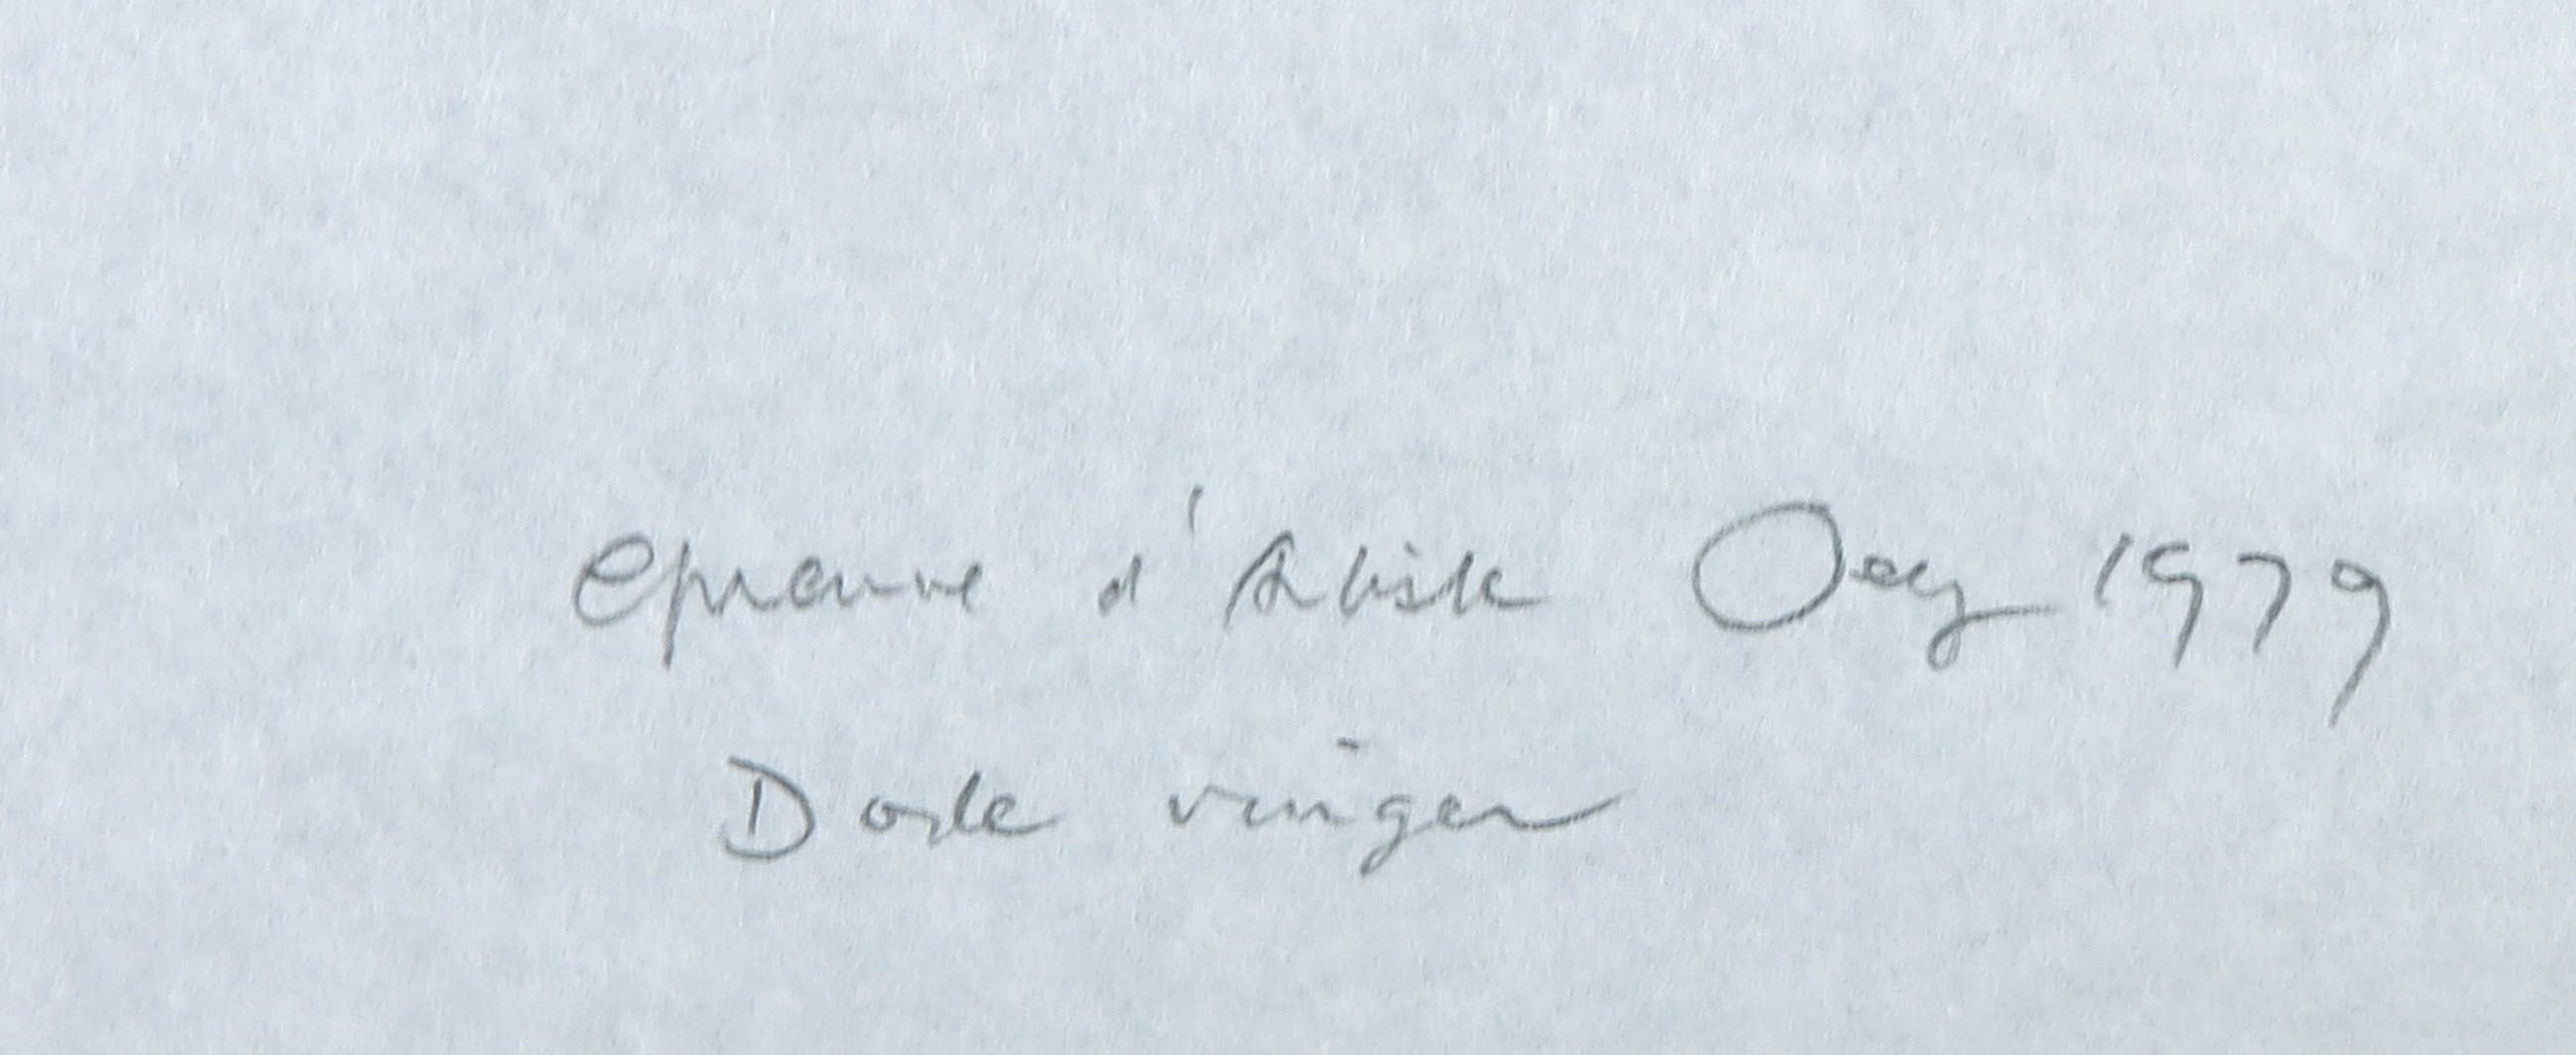 epreuve d'Artiste Oey 1979
Dode vinger